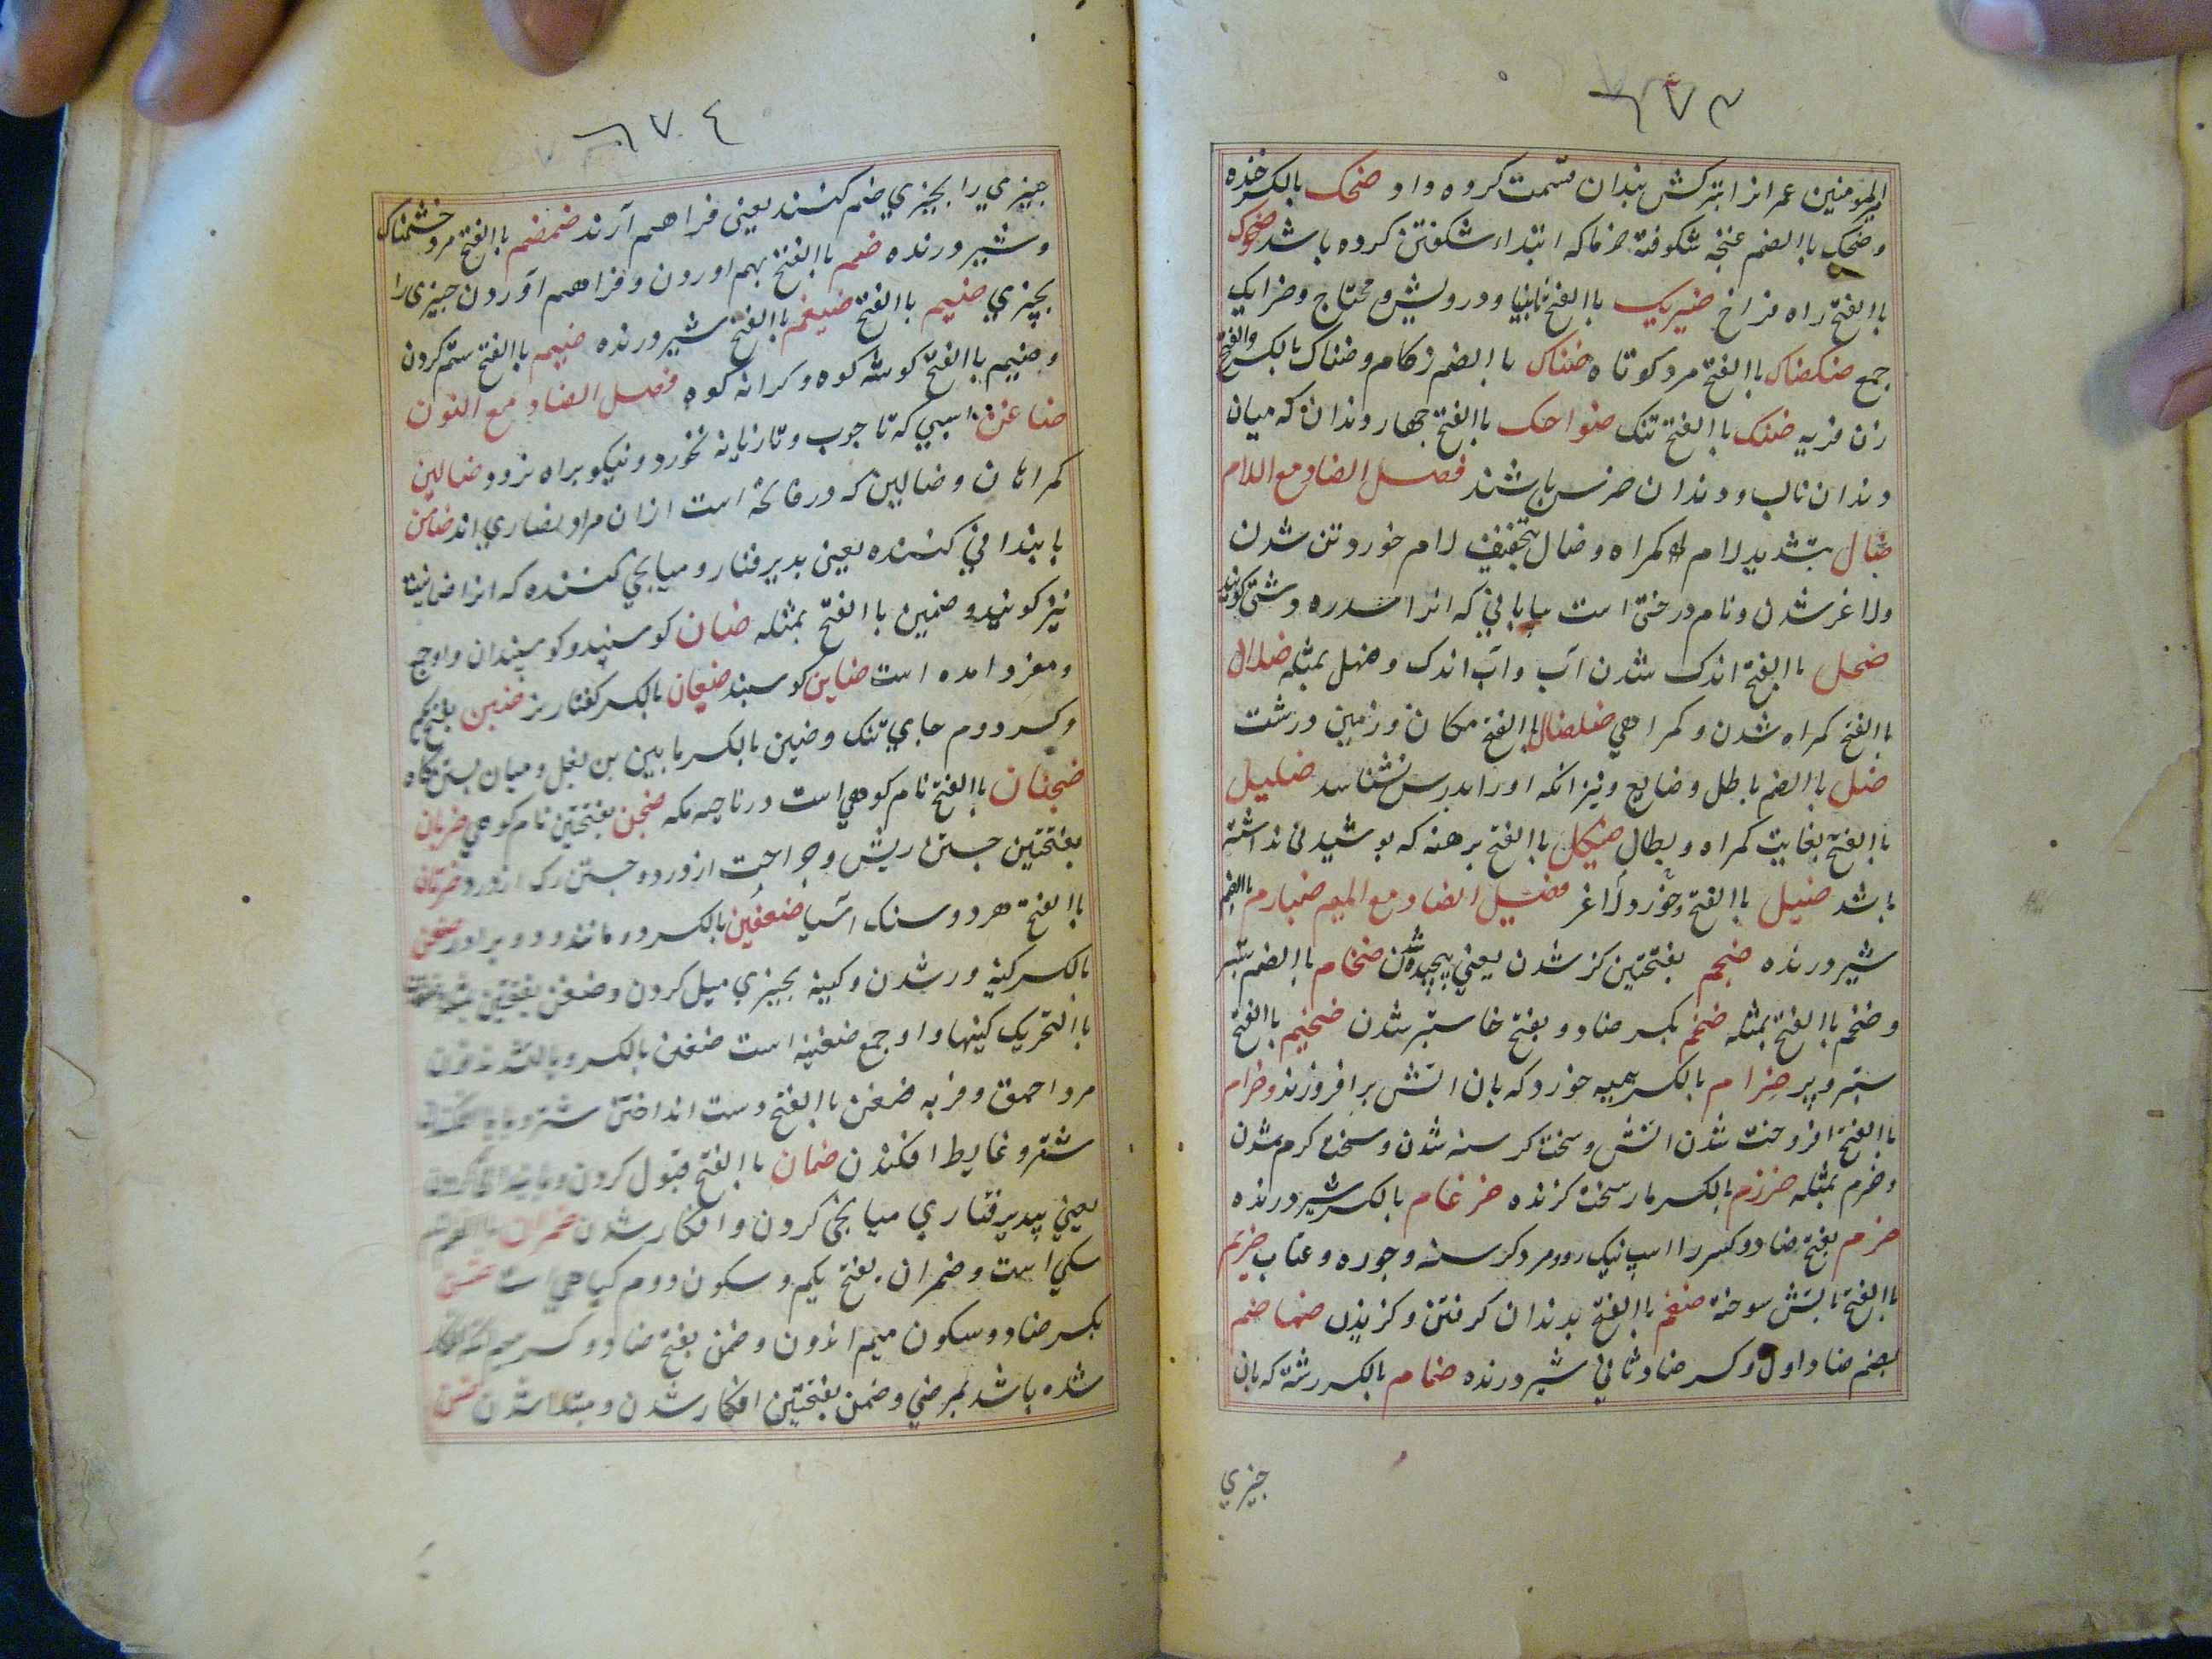 ٦٧٣
المومنین عمر انرا بترکش بندان قسمت کرده داد ضحک بالکسر خنده
و ضحک باالضم غنچه شکوفه خرما که ابتداء شکفتن کرده باشد ضحوک
باالفتح راه فراخ ضریک باالفتح نابینا و درویش و محتاج و ضرایک
جمع ضکضاک باالفتح مرد کوتاه ضناک باالضم زکام و ضناک بالکسر والفتح
زن فربه ضنک باالفتح تنک ضواحک باالفتح چهار دندان که میان
دندان ناب و دندان ضرس باشند فصل الضاد مع اللام
ضال بتشدید لام کمراه و ضال بتخفیف لام خورد تن شدن
ولاغر شدن و نام درختی است بیابانی که انرا سدره دشتی کویند
ضحل باالفتح اندک شدن آب و آب اندک و ضهل بمثله ضلال
باالفتح کمراه شدن و کمراهی ضلضال باالفتح مکان و زمین درشت
ضل باالضم باطل و ضایع و نیز انکه او را و پدرش نشناسد ضلیل
باالفتح بغایت کمراه و بطال ضیکل باالفتح برهنه که پوشیدنی نداشته
باشد ضئیل باالفتح خورد و لاغر فصل الضاد مع المیم ضبارم باالضم
شیر درنده ضجم بفتحتین کژ شدن یعنی پیچیده شدن ضخام باالضم ستبر
و ضخم باالفتح بمثله ضخم بکسر ضاد و بفتح خا ستبر شدن ضخیم باالفتح
ستبر و پر ضرام بالکسر هیمه خورد که بان اتش برافروزند و ضرام
باالفتح افروخته شدن اتش و سخت کرسنه شدن و سخت کرم شدن
و ضرم بمثله ضرزم بالکسر مار سخت کزنده ضرغام بالکسر شیر درنده
ضرم بفتح ضاد و کسر را اسپ نیک رو و مرد کرسنه و جوزه و عقاب ضریم
باالفتح باتش سوخته ضغم باالفتح بدندان کرفتن و کزیدن ضماضم
بضم ضاد اول و کسر ضاد ثانی شیر درنده ضمام بالکسر رشته که بان
چیزی
٦٧٤
چیزی را بچیزی ضم کنند یعنی فراهم آرند ضمضم باالفتح مرد خشمناک
و شیر درنده ضم باالفتح بهم اوردن و فراهم آوردن چیزی را
بچیزی ضیم باالفتح ضیغم باالفتح شیر درنده ضیم باالفتح ستم کردن
و ضیم باالفتح کوشه کوه و کرانه کوه فصل الضاد مع النون
ضاغن اسپی که تا چوب و تازیانه نخورد و نیکو براه نرود ضالین
کمراهان و ضالین که در فاتحه است ازان مراد نصاری اند ضامن
پایندانی کننده یعنی پذیرفتار و میانجی کننده که انرا ضمانت
نیز کویند و ضمین باالفتح بمثله ضان کوسپند و کوسپندان و او جمع
و مفرد امده است ضاین کوسپند ضبعان بالکسر کفتار نر ضبن بفتح یکم
و کسر دوم جای تنک و ضبن بالکسر مابین بن بغل و میان بستن کاه
ضجنان باالفتح نام کوهی است در ناحیه مکه ضجن بفتحتین نام کوهی ضربان
بفتحتین جستن ریش و جراحت از درد و جستن رک از درد ضرتان
باالفتح هر دو سنک آسیا ضعفین بالکسر دو مانند و دو برابر ضغن
بالکسر کینه ور شدن و کینه بچیزی میل کردن و ضغن بفتحتین بمثله
باالتحریک کینها و او جمع ضغینه است ضفن بالکسر و بالتشدید نون
مرد احمق و فربه ضفن باالفتح دست انداختن شتر و پا
شتر و غایط افکندن ضمان باالفتح قبول کردن و پایندانی کردن
یعنی پذیرفتاری میانجی کردن و افکار شدن ضمران
سکی است و ضمران بفتح یکم و سکون دوم کیاهی است ضمن
بکسر ضاد و سکون میم اندرون و ضمن بفتح ضاد و کسر میم
شده باشد بمرضی و ضمن بفتحتین افکار شدن و مبتلا شدن ضن